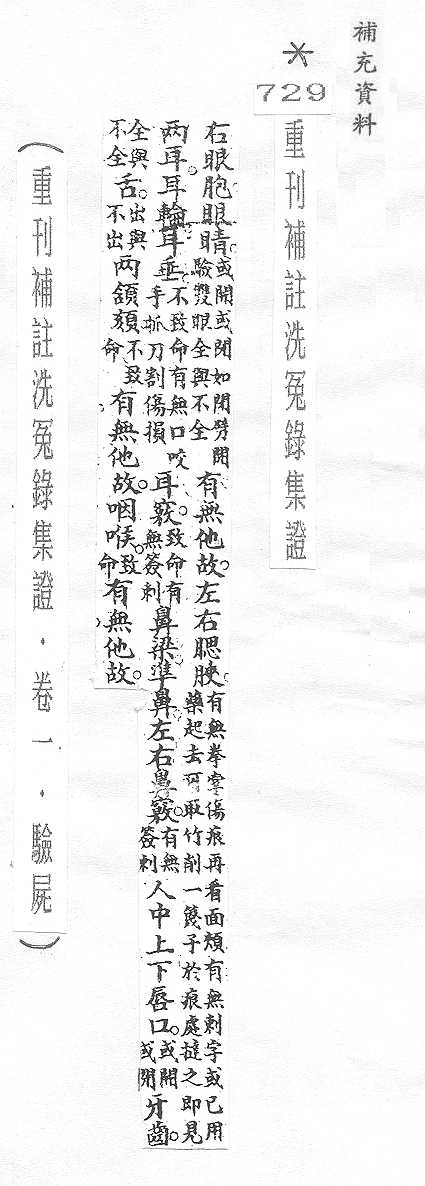 補充資料
*
729
重刊補註洗冤錄集證
右眼胞眼睛。或開或閉如閉劈開驗雙眼全與不全有無他故。左右腮脥。有無拳拿傷痕再看面頰有無刺字或已用藥起去可取竹削一篾子於痕處撻之即見
两耳。耳輪耳垂不致命有無口咬手抓刀割傷損耳竅。致命有無簽刺鼻梁準鼻左右鼻竅。有無簽刺人中上下唇口。或開或閉牙齒。
全與不全舌。出與不出两頷頦不致命有無他故。咽喉。致命有無他故。
（重刊補註洗冤錄集證．卷一．驗屍）